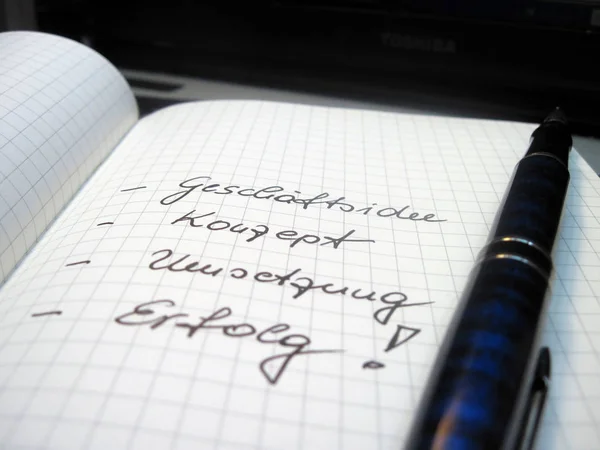 TOSHIBA
- Geschäftsidee
- Konzept
- Umsetzung
- Erfolg!